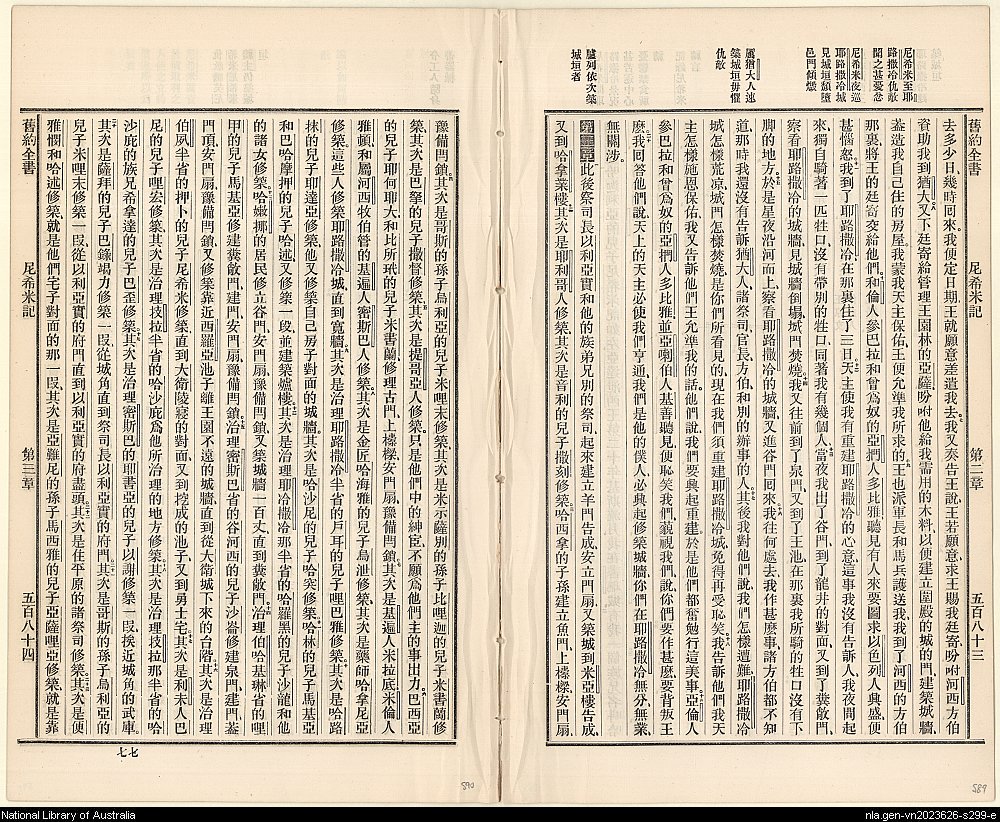 舊約全書 尼希米記 第二章 五百八十三
尼希米至耶
路撒冷仇敵
聞之甚憂忿
尼希米夜巡
耶路撒冷城
見城垣頹墮
邑門傾燬
屬猶大人速
築城垣毋懼
仇敵
臚列依次築
城垣者
去多少日、幾時回來、我便定日期、王就願意差遣我去、我又奏告王說、王若願意、求王賜我廷寄、吩咐河西方伯
資助我到猶大、又下廷寄給管理王園林的亞薩、吩咐他給我需用的木料、以便建立圍殿的城的門、建築城牆、
蓋造我自己住的房屋、我蒙我天主保佑、王便允準我所求的、王也派軍長和馬兵護送我、我到了河西的方伯
那裏、將王的廷寄交給他們、和倫人參巴拉和曾爲奴的亞捫人多比雅聽見有人來要圖求以色列人興盛、便
甚惱怒、我到了耶路撒冷、在那裏住了三日、天主使我有重建耶路撒冷的心意、這事我沒有告訴人、我夜間起
來、獨自騎著一匹牲口、沒有帶別的牲口、同著我有幾個人、當夜我出了谷門、到了龍井的對面、又到了糞敵門、
察看耶路撒冷的城牆、見城牆倒塌、城門焚燒、我又往前到了泉門、又到了王池、在那裏我所騎的牲口沒有下
脚的地方、於是星夜沿河而上、察看耶路撒冷的城牆、又進谷門回來、我往何處去、我作甚麼事、諸方伯都不知
道、那時我還沒有告訴猶大人、諸祭司、官長、方伯、和別的辦事的人、其後我對他們說、我們怎樣遭難、耶路撒冷
城怎樣荒凉、城門怎樣焚燒、是你們所看見的、現在我們須重建耶路撒冷城、免得再受恥笑、我告訴他們我天
主怎樣施恩保佑我、又告訴他們王允準我的話、他們說、我們要興起重建、於是他們都奮勉行這美事、
參巴拉和曾爲奴的亞捫人多比雅、並亞喇伯人基善聽見、便恥笑我們、藐視我們、說、你們要作甚麼、要背叛王
麼、我回答他們說、天上的天主必使我們亨通、我們是他的僕人、必興起修築城牆、你們在耶路撒冷無分、無業、
無關涉、
第三章 此後祭司長以利亞實和他的族弟兄別的祭司、起來建立羊門、告成、安立門扇、又築城到米亞樓、告成、
又到哈拿業樓、其次是耶利哥人修築、其次是音利的兒子撒刻修築、哈西拿的子孫建立魚門、上樑棟、安門扇、
豫備閂鎖、其次是哥斯的孫子烏利亞的兒子米哩末修築、其次是米示薩別的孫子比哩迦的兒子米書蘭修
築、其次是巴拏的兒子撒督修築、其次是提哥亞人修築、只是他們中的紳宦、不願爲他們主的事出力、巴西亞
的兒子耶何耶大、和比所玳的兒子米書蘭修理古門、上樑棟、安門扇、豫備閂鎖、其次是基遍人米拉底、米倫人
雅頓、和屬河西牧伯管的基遍人密斯巴人修築、其次是金匠哈海雅的兒子烏泄修築、其次是藥師哈拿尼亞
修築、這些人修築耶路撒冷城、直到寬牆、其次是治理耶路撒冷半省的戶耳的兒子哩巴雅修築、其次是哈路
抹的兒子耶達亞修築、他又修築自己房子對面的城牆、其次是哈沙尼的兒子哈突修築、哈林的兒子馬基亞
和巴哈摩押的兒子哈述又修築一段、並建築爐樓、其次是治理耶冷撒冷那半省的哈羅黑的兒子沙龍和他
的諸女修築、哈嫩挪的居民修立谷門、安門扇、豫備閂鎖、又築城牆一百丈、直到糞敵門、治理伯哈基琳省的哩
甲的兒子馬基亞修建糞敵門、建門、安門扇、豫備閂鎖、治理密斯巴省的谷河西的兒子沙崙修建泉門、建門、蓋
門頂、安門扇、豫備閂鎖、又修築靠近西羅亞池子離王園不遠的城牆、直到從大衛城下來的台階、其次是治理
伯夙半省的押卜的兒子尼希米修築、直到大衛陵寢的對面、又到挖成的池子、又到勇士宅、其次是利未人巴
尼的兒子哩宏修築、其次是治理技拉半省的哈沙庇爲他所治理的地方修築、其次是治理技拉那半省的哈
沙庇的族兄希拿達的兒子巴歪修築、其次是治理密斯巴的耶書亞的兒子以謝修築一段、挨近城角的武庫、
其次是薩拜的兒子巴錄竭力修築一段、從城角直到祭司長以利亞實的府門、其次是哥斯的孫子烏利亞的
兒子米哩末修築一段、從以利亞實的府門直到以利亞實的府盡頭、其次是住平原的諸祭司修築、其次是便
雅憫和哈述修築、就是他們宅子對面的那一段、其次是亞難尼的孫子馬西雅的兒子亞薩哩亞修築、就是靠
舊約全書 尼希米記 第三章 五百八十四
七七
590
589
National Library of Australia
nla.gen-vn2023626-s299-e